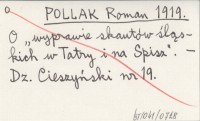 POLLAK Roman 1919.
O „wyprawie skautów śląs-
kich w Tatry i na Spisz". –
Dz. Cieszyński nr 19.